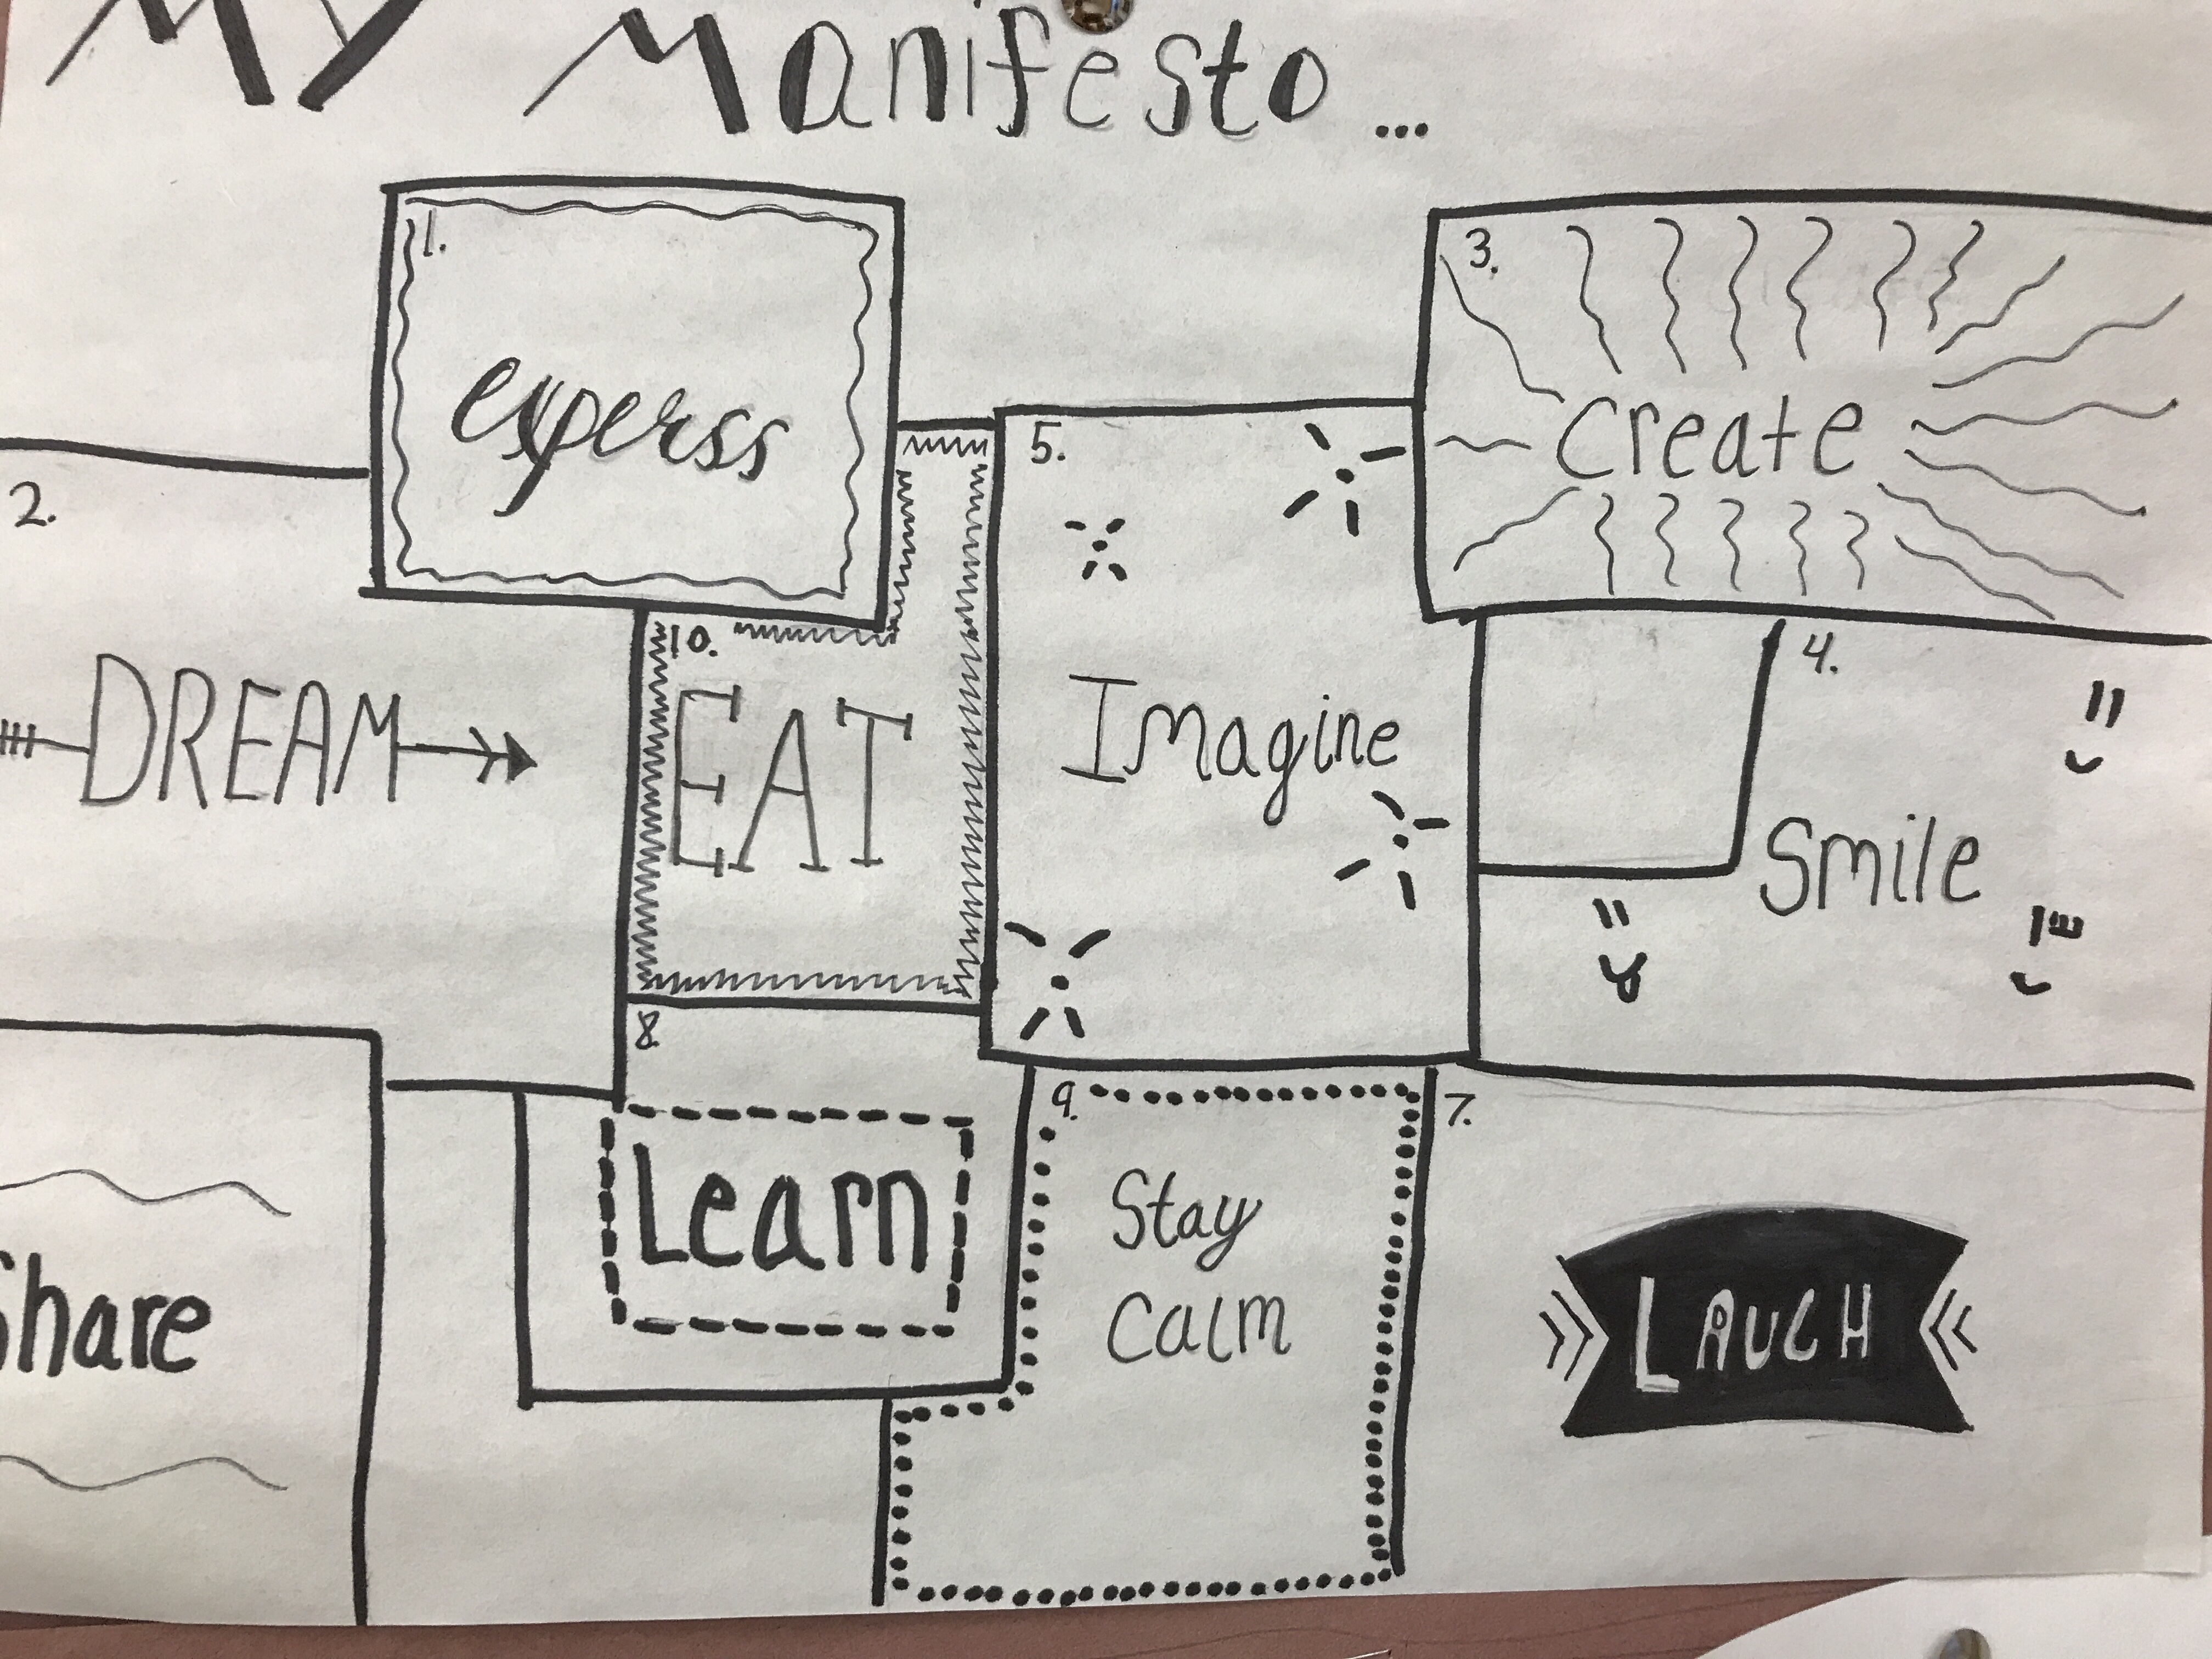 My Manifesto...
1.
experss
2.
DREAM
3.
create
4.
Smile
5.
Imagine
Share
7.
LAUGH
8.
Learn
9.
Stay
Calm
10.
EAT